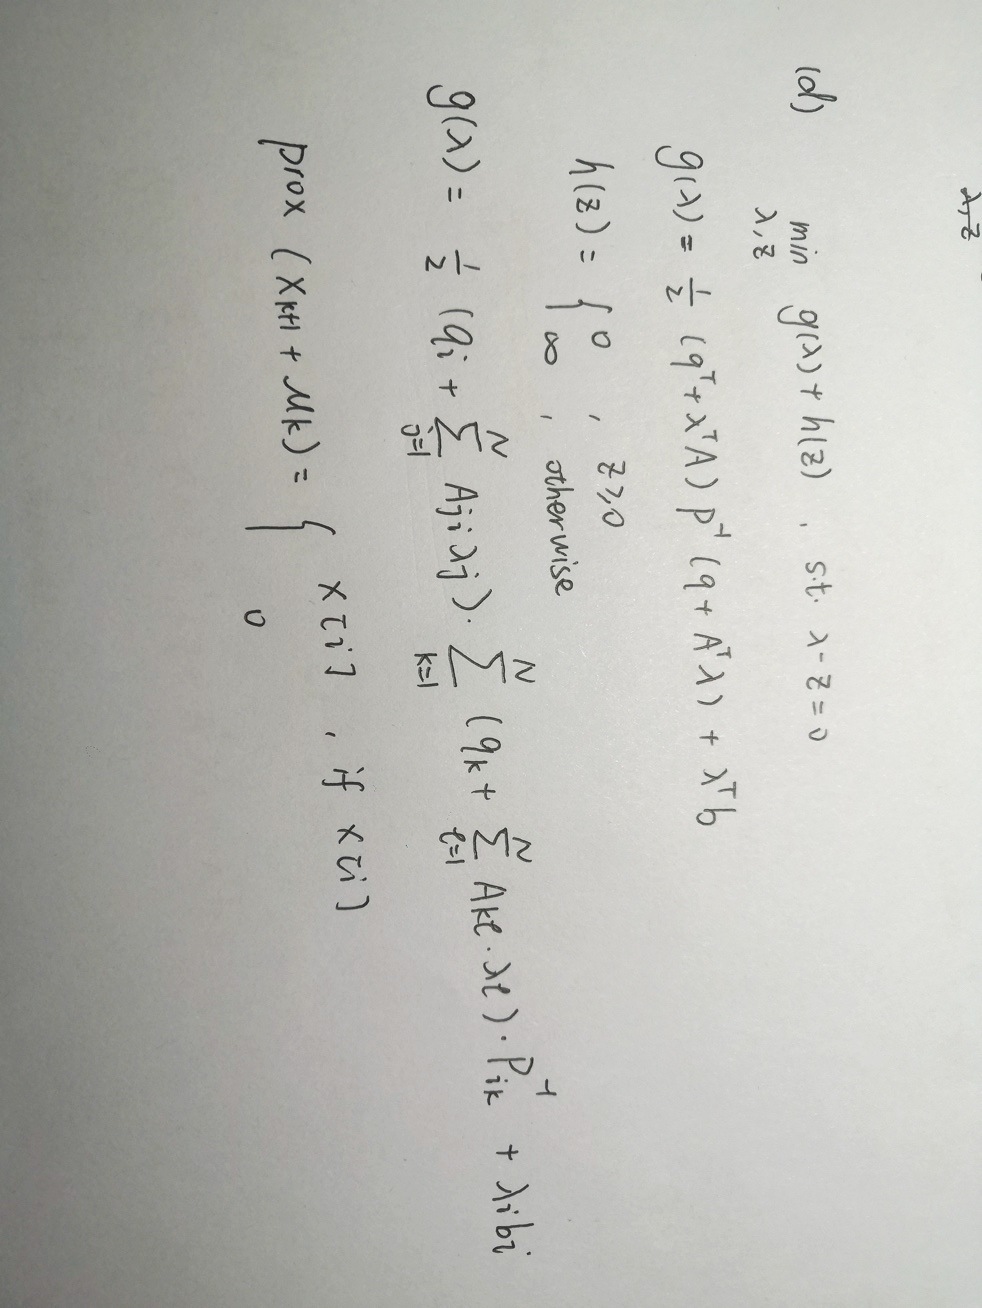 λ,z
(d) min g(λ) + h(z) , s.t. λ - z = 0
λ, z
g(λ) = 1/2 (qᵀ + λᵀA) P⁻¹ (q + Aᵀλ) + λᵀb
h(z) = { 0 , z ≥ 0
∞ , otherwise
g(λ) = 1/2 (qi + ∑_{j=1}^{N} Aji λj) · ∑_{k=1}^{N} (qk + ∑_{ℓ=1}^{N} Akℓ · λℓ) · P⁻¹ik + λibi
prox (xk+1 + μk) = { x[i] , if x[i]
0